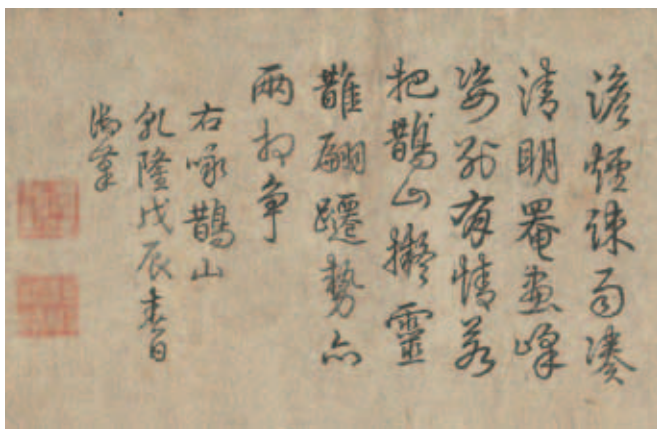 澹煙疎雨湊
清明罨畫峰
姿別有情若
把鵲山擬靈
䧿翩躚勢亦
兩相爭
右咏鵲山
乾隆戊辰春日
御筆